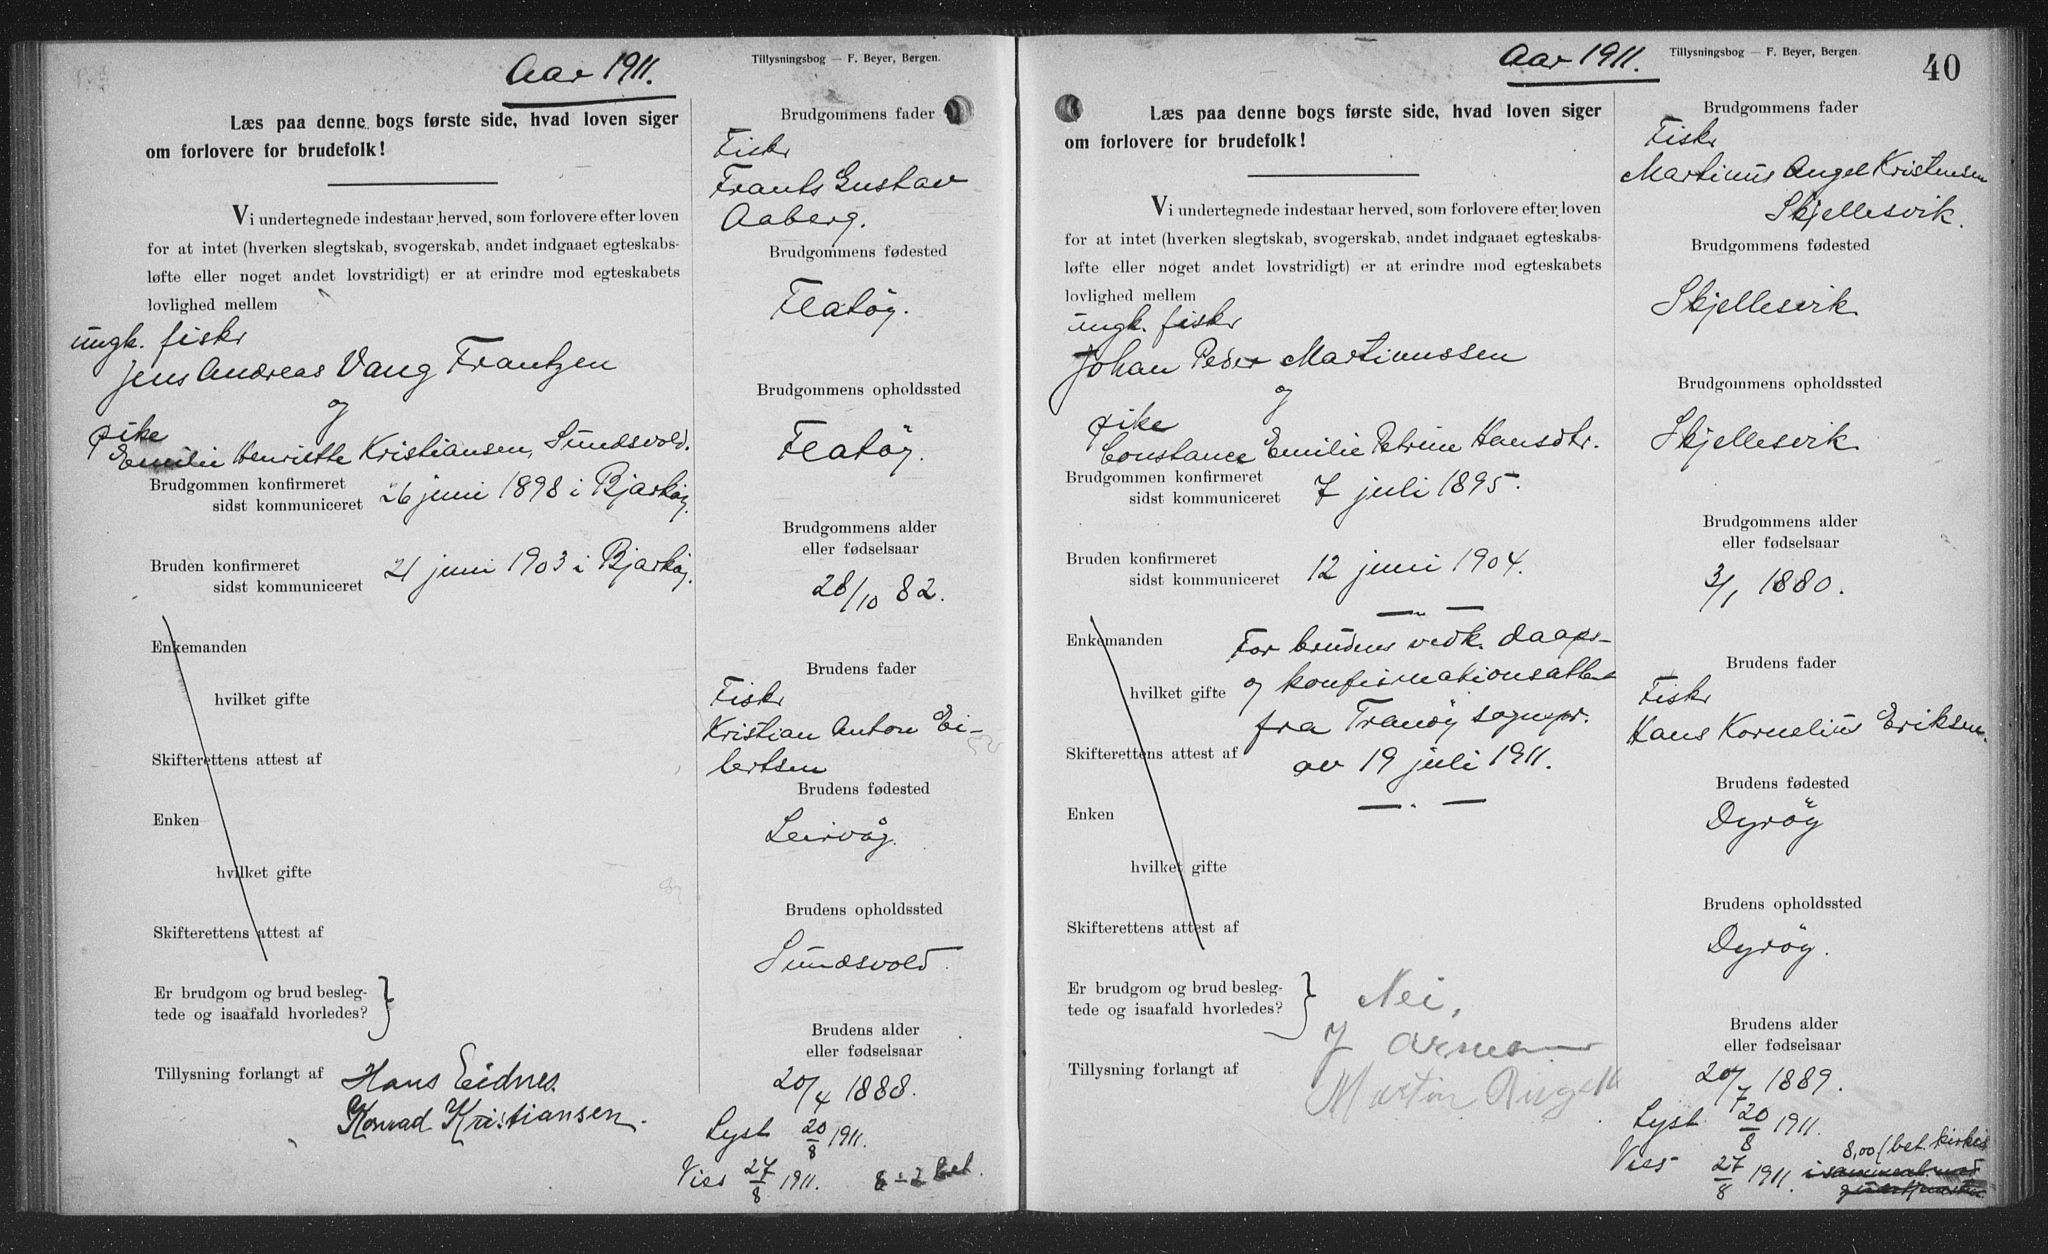 Aar 1911.
Tillysningsbog — F. Beyer, Bergen.
Læs paa denne bogs første side, hvad loven siger
om forlovere for brudefolk!
Vi undertegnede indestaar herved, som forlovere efter loven
for at intet (hverken slegtskab, svogerskab, andet indgaaet egteskabs-
løfte eller noget andet lovstridigt) er at erindre mod egteskabets
lovlighed mellem
ungk. fiskr
Jens Andreas Vang Frantzen
og
pike
Emilie Henriette Kristiansen, Sundsvold.
Brudgommen konfirmeret
sidst kommuniceret
26 juni 1898 i Bjarkøy.
Bruden konfirmeret
sidst kommuniceret
21 juni 1903 i Bjarkøy.
Enkemanden
hvilket gifte
Skifterettens attest af
Enken
hvilket gifte
Skifterettens attest af
Er brudgom og brud besleg-
tede og isaafald hvorledes?
Tillysning forlangt af
Hans Eidnes.
Konrad Kristiansen.
Brudgommens fader
Fiskr
Frants Gustav
Aaberg.
Brudgommens fødested
Flatøy.
Brudgommens opholdssted
Flatøy.
Brudgommens alder
eller fødselsaar
28/10 82.
Brudens fader
Fiskr
Kristian Anton Ei-
bertsen
Brudens fødested
Leirvåg.
Brudens opholdssted
Sundsvold.
Brudens alder
eller fødselsaar
20/4 1888.
Lyst 20/8 1911.
Vies 27/8 1911. bet.
Aar 1911.
Tillysningsbog — F. Beyer, Bergen.
40
Læs paa denne bogs første side, hvad loven siger
om forlovere for brudefolk!
Vi undertegnede indestaar herved, som forlovere efter loven
for at intet (hverken slegtskab, svogerskab, andet indgaaet egteskabs-
løfte eller noget andet lovstridigt) er at erindre mod egteskabets
lovlighed mellem
ungk. fiskr
Johan Peder Martinussen
og
pike
Constance Emilie Petrine Hansdtr.
Brudgommen konfirmeret
sidst kommuniceret
7 juli 1895.
Bruden konfirmeret
sidst kommuniceret
12 juni 1904.
Enkemanden
hvilket gifte
Skifterettens attest af
For brudens vedk. daaps-
og konfirmationsattest
fra Tranøy sognepr.
av 19 juli 1911.
Enken
hvilket gifte
Skifterettens attest af
Er brudgom og brud besleg-
tede og isaafald hvorledes?
Nei,
Tillysning forlangt af
Martin
Brudgommens fader
Fiskr
Martinus Angel Kristensen
Skjellesvik.
Brudgommens fødested
Skjellesvik
Brudgommens opholdssted
Skjellesvik
Brudgommens alder
eller fødselsaar
3/1 1880.
Brudens fader
Fiskr
Hans Kornelius Eriksen.
Brudens fødested
Dyrøy
Brudens opholdssted
Dyrøy.
Brudens alder
eller fødselsaar
20/7 1889.
Lyst 20/8 1911.
Vies 27/8 1911. 8,00 (bet. kirken